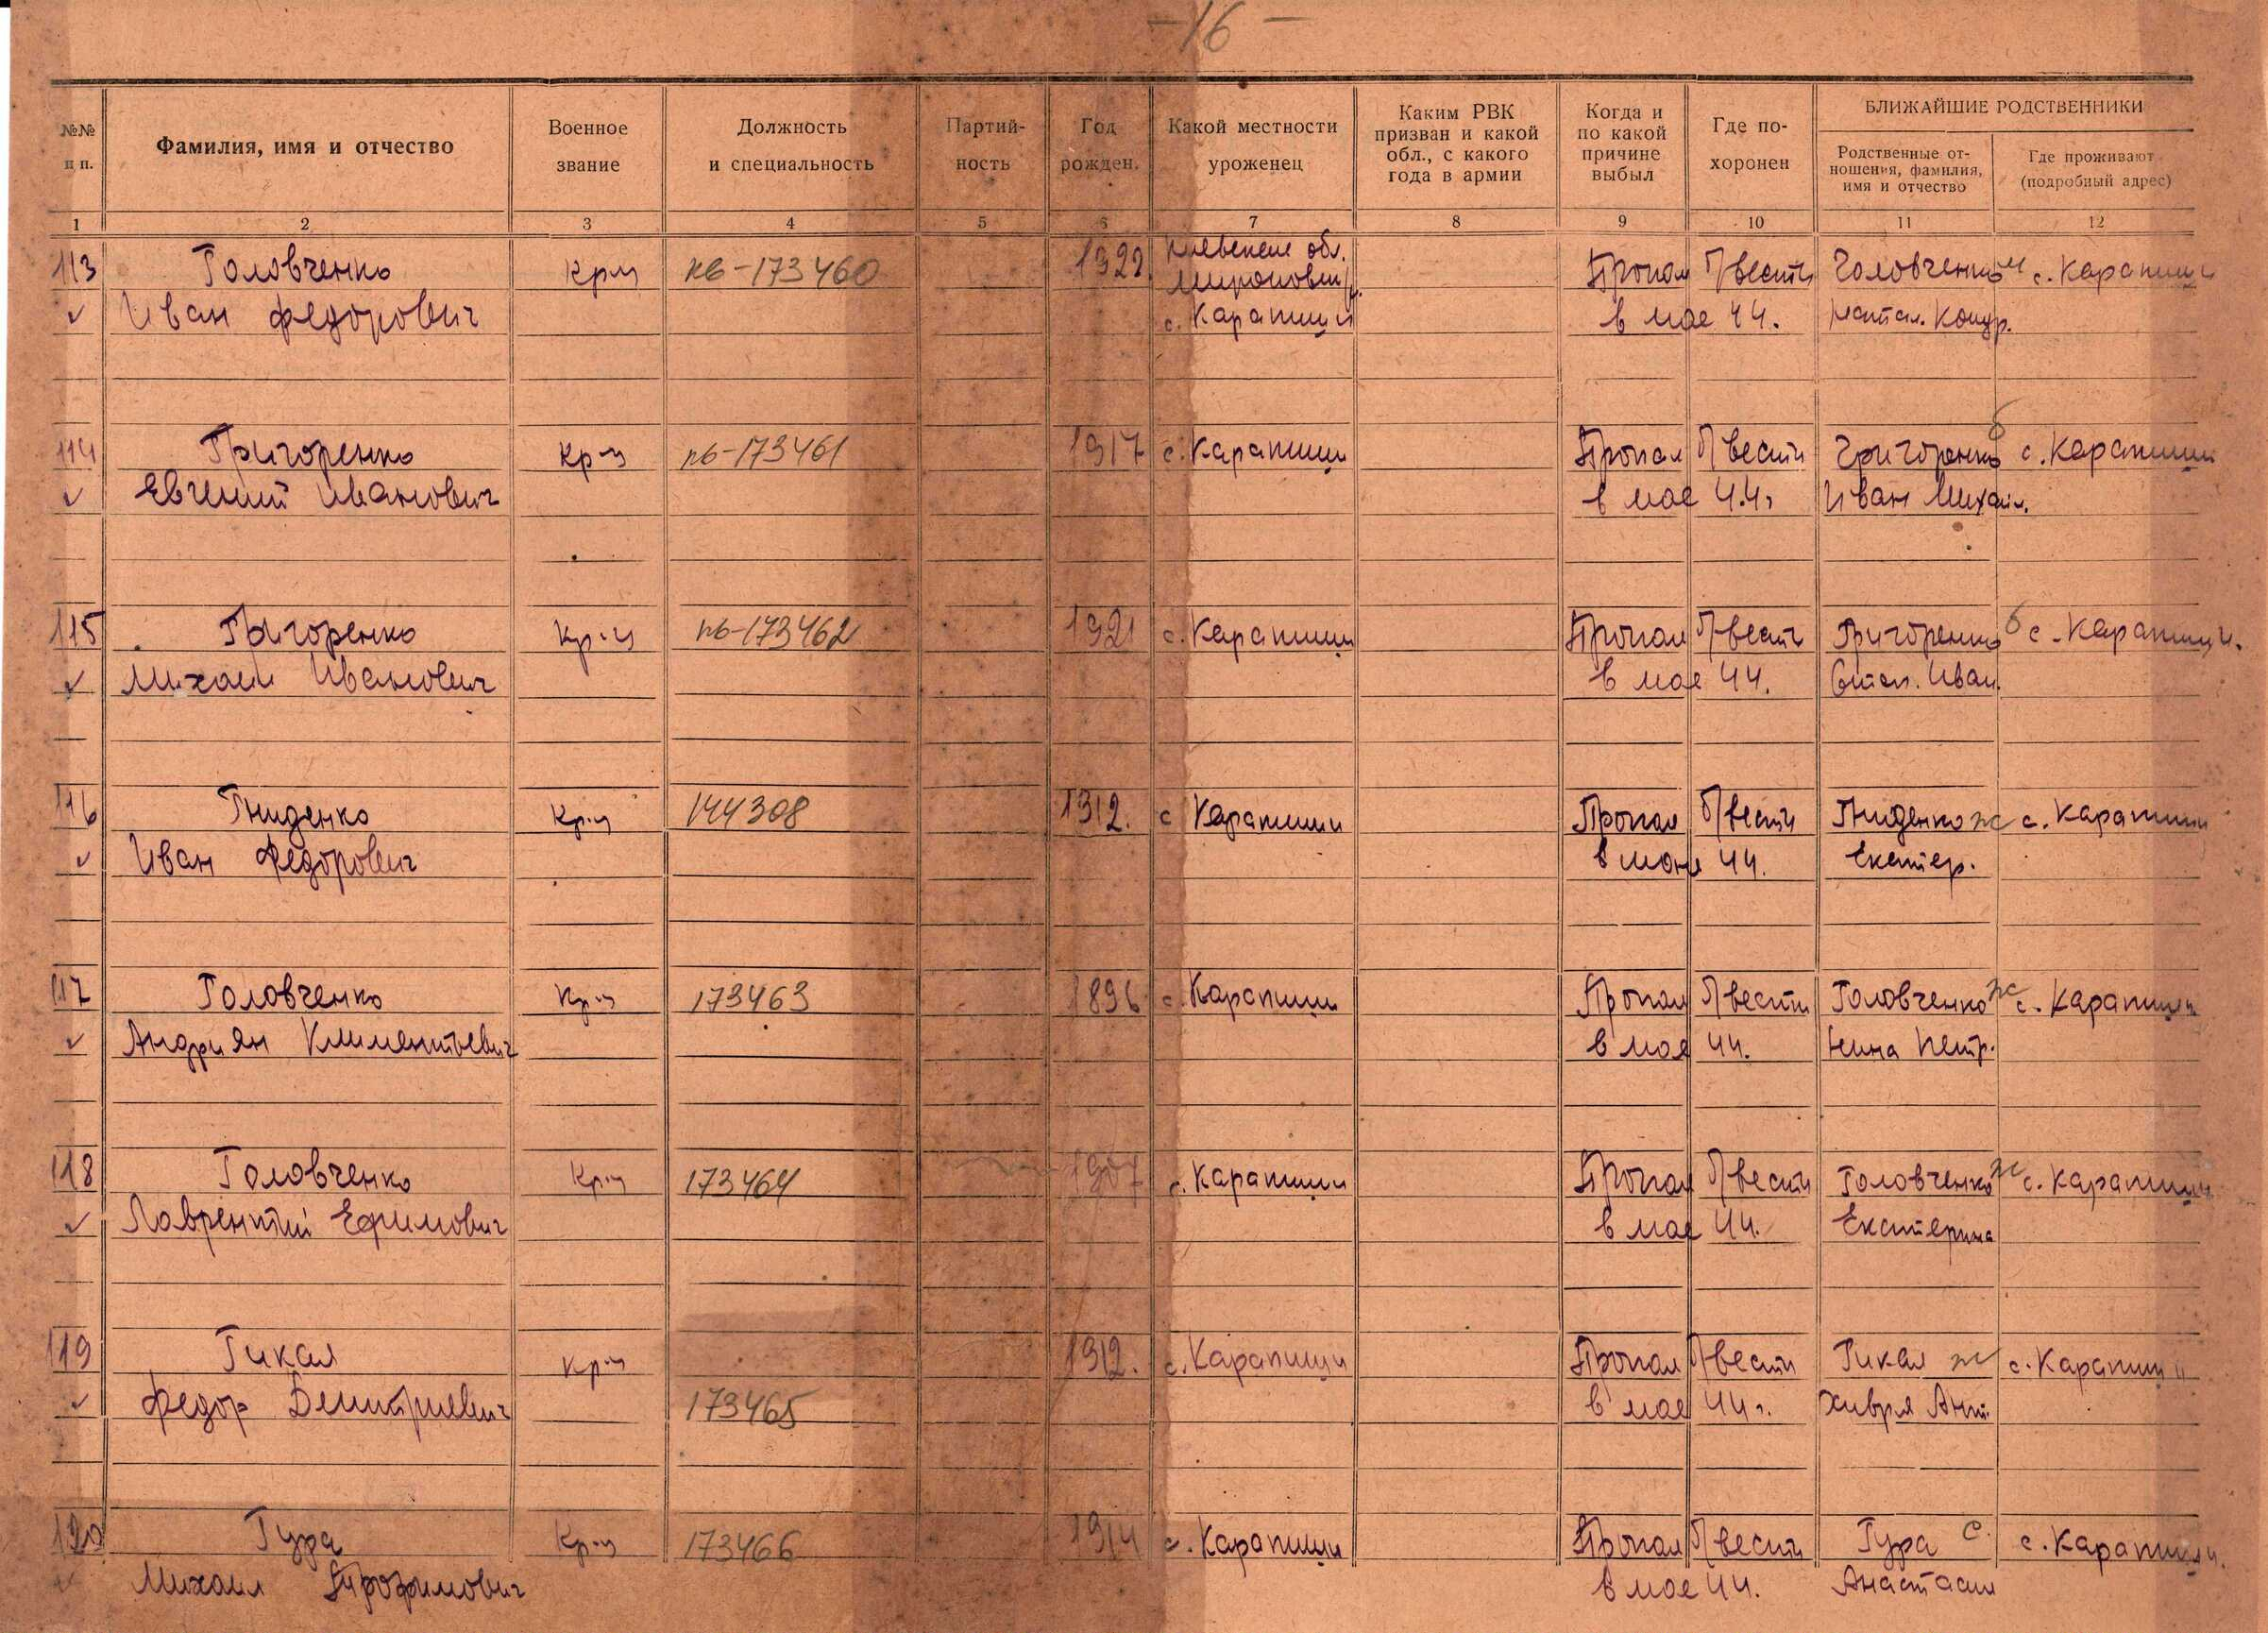 -16-
№№ п п.
Фамилия, имя и отчество
Военное звание
Должность и специальность
Партий-ность
Год рожден.
Какой местности уроженец
Каким РВК призван и какой обл., с какого года в армии
Когда и по какой причине выбыл
Где по-хоронен
БЛИЖАЙШИЕ РОДСТВЕННИКИ
Родственные от-ношения, фамилия, имя и отчество
Где проживают (подробный адрес)
1 2 3 4 5 6 7 8 9 10 11 12
Киевские обл.
113 Головченко Кр-ц пб-173460 1922 Пропал б/вести Головченко м с. Карапиши
Иван Федорович с. Карапиши в мае 44. Кондр.
114 Григоренко кр-ц пб-173461 1917 с. Карапиши Пропал б/вести Григоренко б с. Карапиши
Евгений Иванович в мае 44г Иван Михаил.
115 Григоренко Кр-ц пб-173462 1921 с. Карапиши Пропал б/вести Григоренко б с. Карапиши.
Михаил Иванович в мае 44. Степ. Иван.
116 Гниденко Кр-ц 144308 1912. с Карапиши Пропал б/вести Гниденко ж с. Карапиши
Иван Федорович в 44. Екатер.
117 Головченко Кр-ц 173463 1896 с. Карапиши Пропал б/вести Головченко ж с. Карапиши
Андриян Климентьевич в мае 44. Нина Петр.
118 Головченко Кр-ц 173464 1907 с. Карапиши Пропал б/вести Головченко ж с. Карапиши
Лаврентий Ефимович в мае 44. Екатерина
119 Гикал кр-ц 1912. с. Карапиши Пропал б/вести Гикал ж с. Карапиши
Федор Дмитриевич 173465 в мае 44г. Хивря Ант.
120 Гура Кр-ц 173466 1914 с. Карапиши Пропал б/вести Гура с. с. Карапиши.
Михаил Трофимович в мае 44. Анастасия